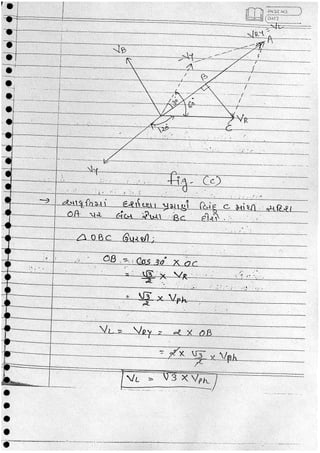 PAGE NO.
DATE
VRY = VL
A
VB
VY
B
30°
60°
120°
VR
C
VY
fig. (c)
→ આકૃતિમાં દર્શાવ્યા પ્રમાણે બિંદુ C માંથી સદિશ
OA પર લંબ રેખા BC દોરો.
△ OBC ઉપરથી;
OB = Cos 30° × OC
= √3/2 × VR
= √3/2 × Vph
VL = VRY = 2 × OB
= 2 × √3/2 × Vph
VL = √3 × Vph